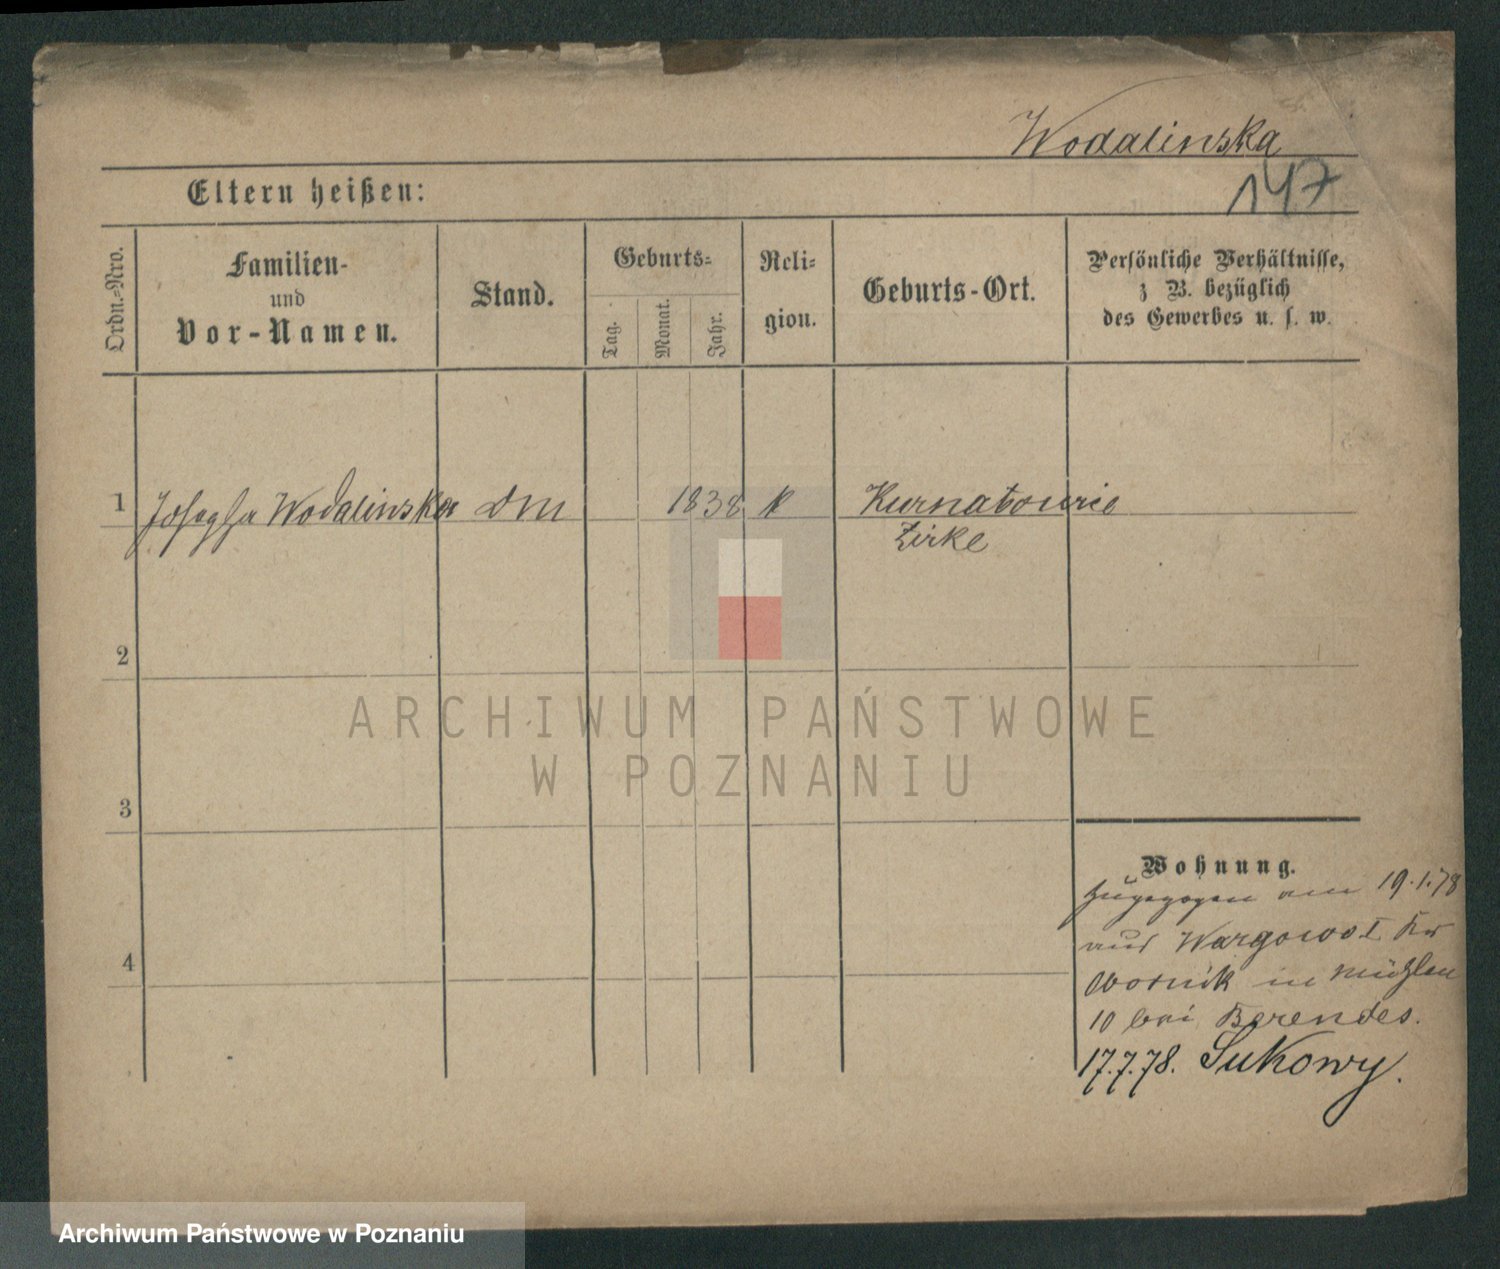 Wodalinska
147
Eltern heißen:
Ordn.-Nro.
Familien-
und
Vor-Namen.
Stand.
Geburts-
Tag.
Monat.
Jahr.
Reli-
gion.
Geburts-Ort.
Persönliche Verhältnisse,
z B. bezüglich
des Gewerbes u. s. w.
1 Josepha Wodalinska 1838 k Kurnatowice
Zirke
2
ARCHIWUM PAŃSTWOWE
W POZNANIU
3
Wohnung.
Zugezogen am 19.1.78
aus Wargowo
in Mühlen
10 bei Berendes.
17.7.78. Sukowy.
4
Archiwum Państwowe w Poznaniu